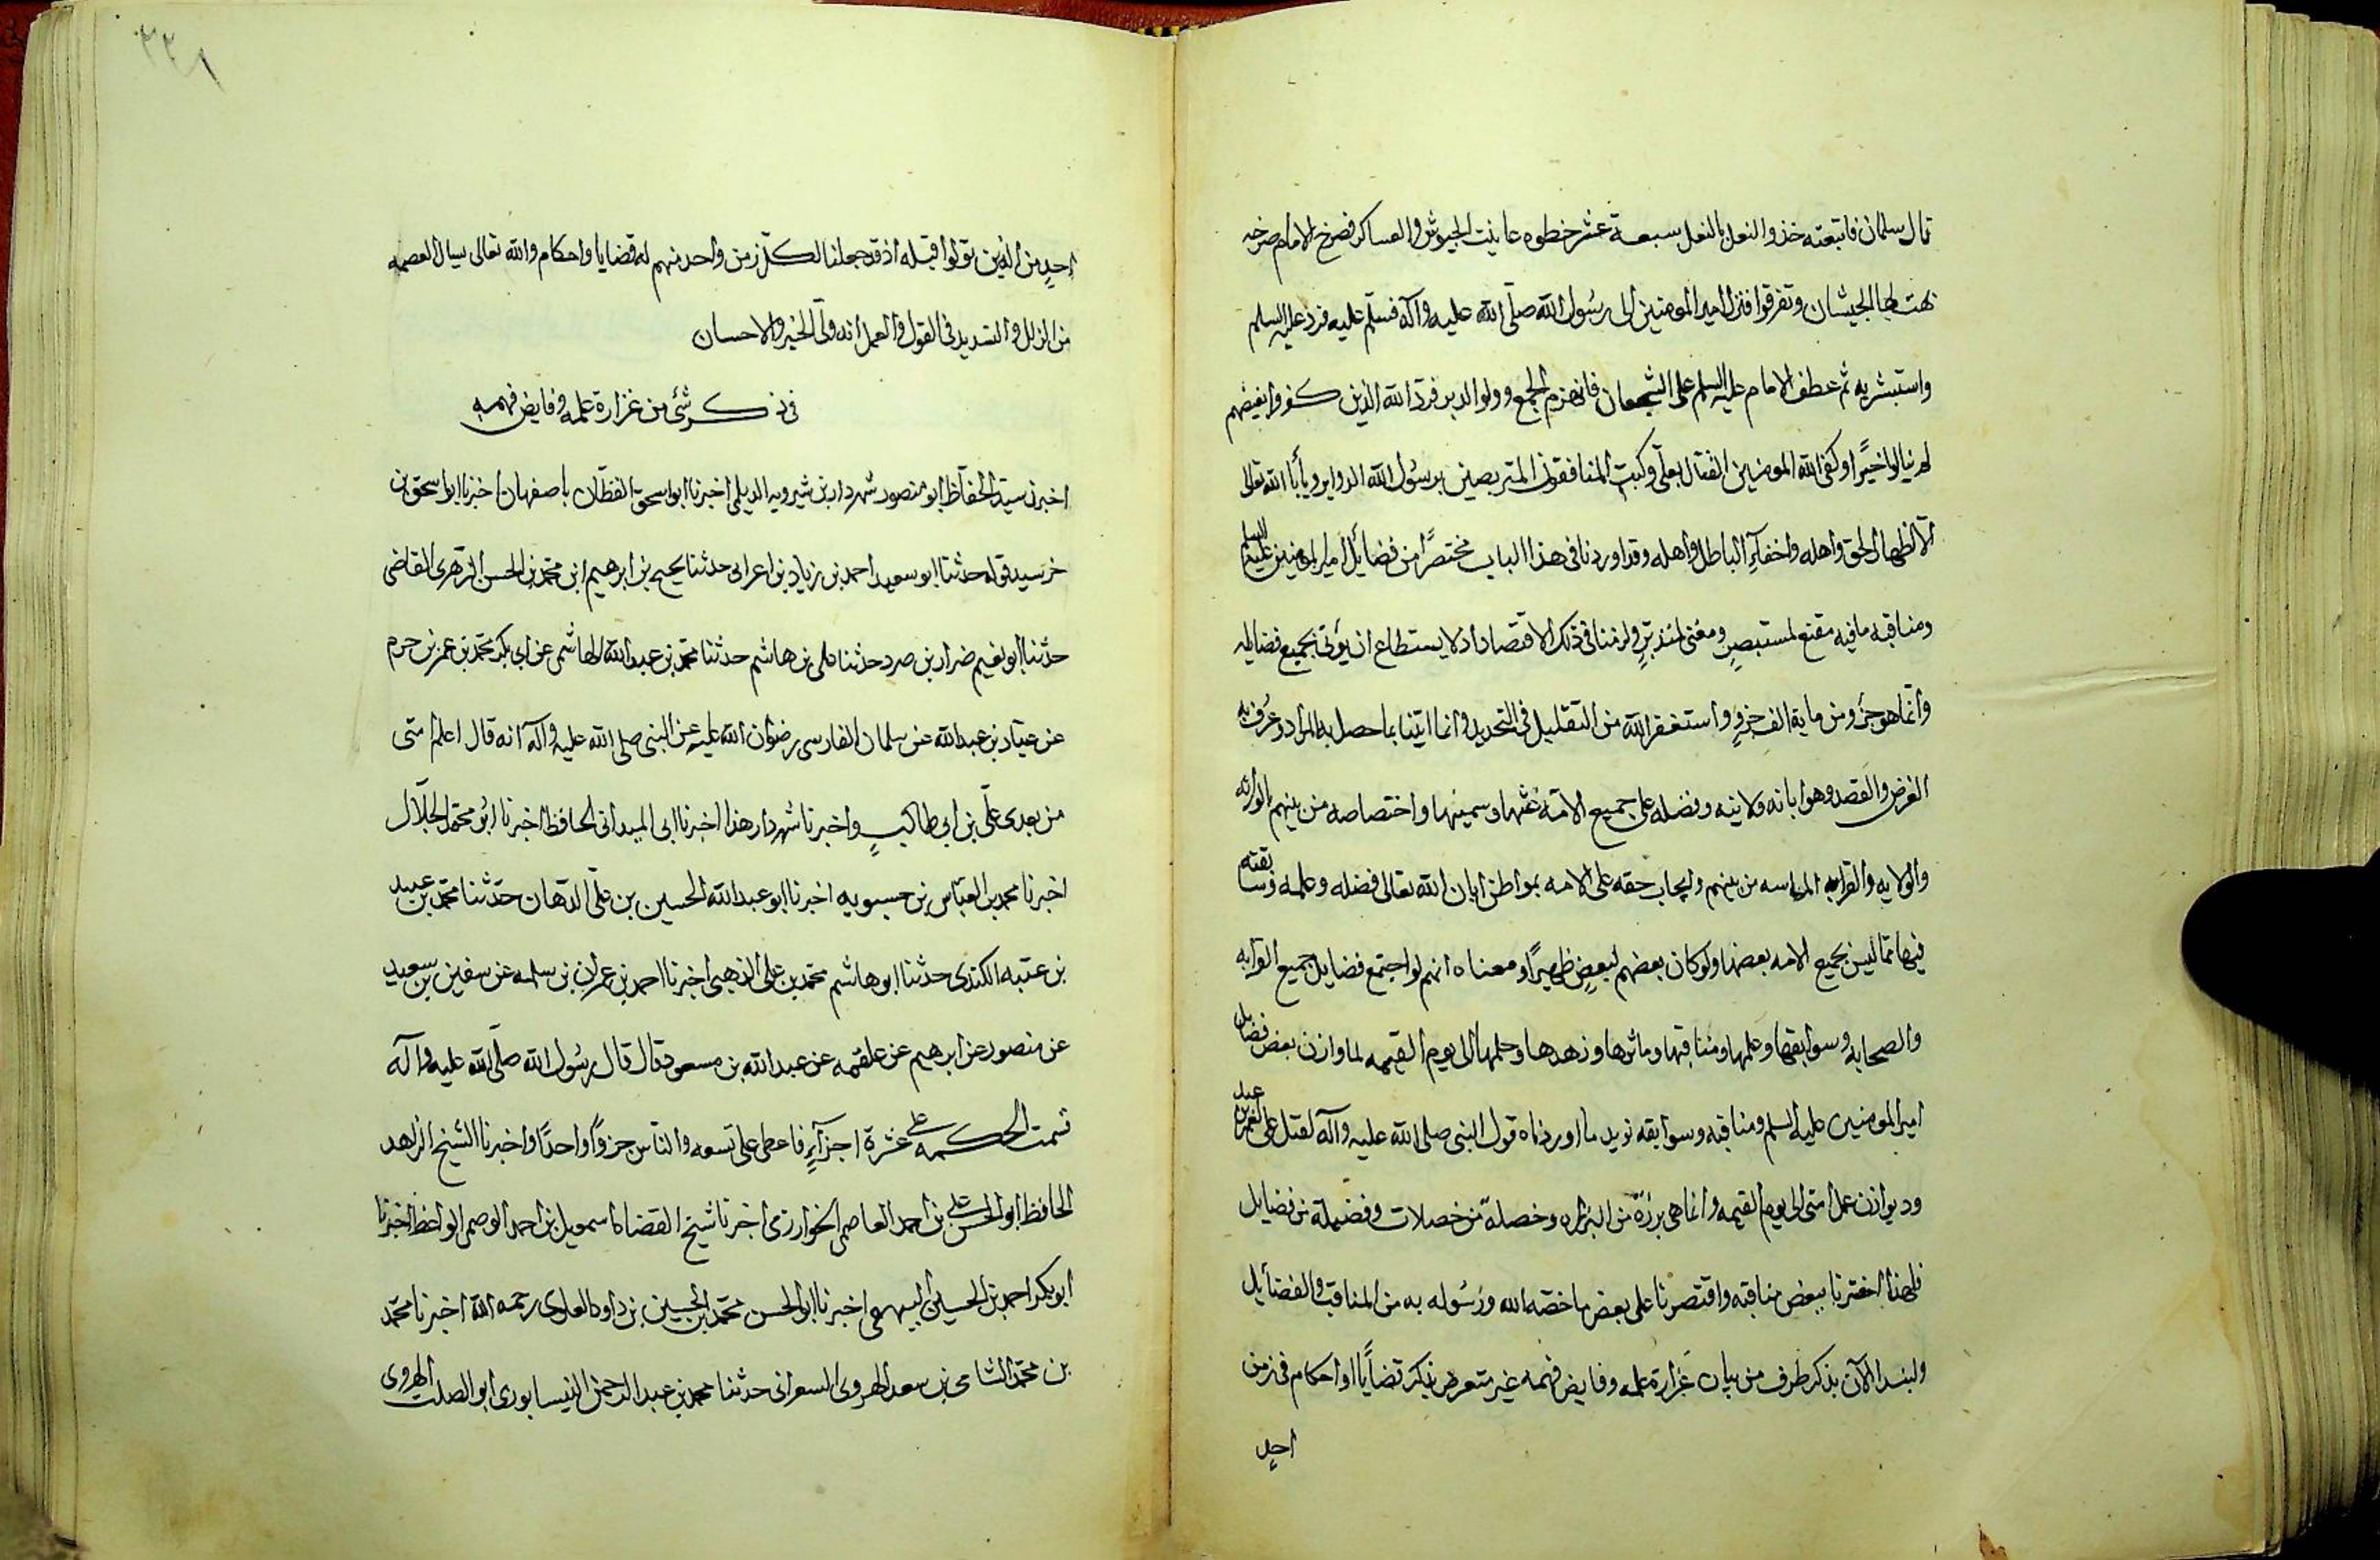 قال سلمان فاتبعته خذو النعل بالنعل سبعة عشر خطوه عاينت الجيوش والعساكر فصرخ الامام صرخه
لها الجيشان وتفرقوا فنزل امير المومنين الى رسول الله صلى الله عليه وآله فسلم عليه فرد عليه السلم
واستبشر به ثم عطف الامام عليه السلم على الشجعان فانهزم الجمع وولوا الدبر فرد الله الذين كفروا بغيضهم
لم ينالوا خيرًا وكفى الله المومنين القتال بعلى وكبت المنافقون المتربصين برسول الله الدواير ويأبا الله تعالى
الا اظهار الحق واهله واخفآء الباطل واهله وقد اوردنا فى هذا الباب مختصرًا من فضايل امير المومنين عليه السلم
ومناقبه ما فيه مقنع لمستبصر ومغنى لمتدبر ولزمنا فى ذلك الاقتصاد اذ لا يستطاع ان يؤتى بجميع فضايله
وانما هو جزء من ماية الف جزءٍ واستغفر الله من التقليل فى التحديد وانما اتينا بما حصل به المراد وعرف به
الغرض والقصد وهو ابانه ولايته وفضله على جميع الامة غثها وسمينها واختصاصه من بينهم بالوراثه
والولايه والقرابه الماسه من بينهم وايجاب حقه على الامه بمواطن ابان الله تعالى فضله وعلمه وسابقته
فيها مما ليس بجميع الامه بعضها ولو كان بعضهم لبعضٍ ظهيرًا ومعناه انهم لو اجتمع فضايل جميع القرابه
والصحابه وسوابقها وعلمها ومناقبها وماثرها وزهدها وحلمها الى يوم القيمه لما وازن بعض فضايل
امير المومنين عليه السلم ومناقبه وسوابقه نويد ما اوردناه قول النبى صلى الله عليه وآله لقتل على لعمرو بن عبد
ود يوازن عمل امتى الى يوم القيمه وانما هى برزة من البزاره وخصلة من خصلات وفضيلة من فضايل
فلهذا اخترنا ببعض مناقبه واقتصرنا على بعض ما خصه الله ورسوله به من المناقب والفضآيل
ولنبدا الآن بذكر طرف من بيان غزارة علمه وفايض فهمه غير متعرض بذكر قضايا او احكام فى زمن
احدٍ
٣٣٨
احدٍ من الذين تولوا قبله اذ قد جعلنا لكل زمن واحد منهم له قضايا واحكام والله تعالى يسال العصمه
من الزلل والتسديد فى القول والعمل انه ولى الخير والاحسان
فى ذكر شئ من غزارة علمه وفايض فهمه
اخبرنى سيد الحفاظ ابو منصور شهردار بن شيرويه الديلمى اخبرنا ابو اسحق القطان باصفهان اخبرنا ابو اسحق بن
خرسيد قوله حدثنا ابو سعيد احمد بن زياد بن اعرابى حدثنا يحيى بن ابرهيم ابن محمد بن الحسن الزهرى القاضى
حدثنا ابو نعيم ضرار بن صرد حدثنا على بن هاشم حدثنا محمد بن عبد الله الهاشمى عن ابى بكر محمد بن عمر بن حزم
عن عباد بن عبد الله عن سلمان الفارسى رضوان الله عليه عن النبى صلى الله عليه وآله انه قال اعلم امتى
من بعدى على بن ابى طالبٍ واخبرنا شهردار هذا اخبرنا ابى الميدانى الحافظ اخبرنا ابو محمد الجلال
اخبرنا محمد بن العباس بن حيسويه اخبرنا ابو عبد الله الحسين بن على الدهان حدثنا محمد بن عبيد
بن عتبه الكندى حدثنا ابو هاشم محمد بن على الذهبى اخبرنا احمد بن عمران بن سلمه عن سفين بن سعيد
عن منصور عن ابرهيم عن علقمه عن عبد الله بن مسعود قال قال رسول الله صلى الله عليه وآله
قسمت الحكمه على عشرة اجزآءٍ فاعطى على تسعه والناس جزوًا واحدًا واخبرنا الشيخ الزاهد
الحافظ ابو الحسن على بن احمد العاصمى الخوارزمى اخبرنا شيخ القضاة اسمعيل بن احمد الواعظ اخبرنا
ابو بكر احمد بن الحسين البيهقى اخبرنا ابو الحسن محمد بن الحسين بن داود العلوى رحمه الله اخبرنا محمد
بن محمد الشامى بن سعد الهروى السعرانى حدثنا محمد بن عبد الرحمن النيسابورى ابو الصلت الهروى